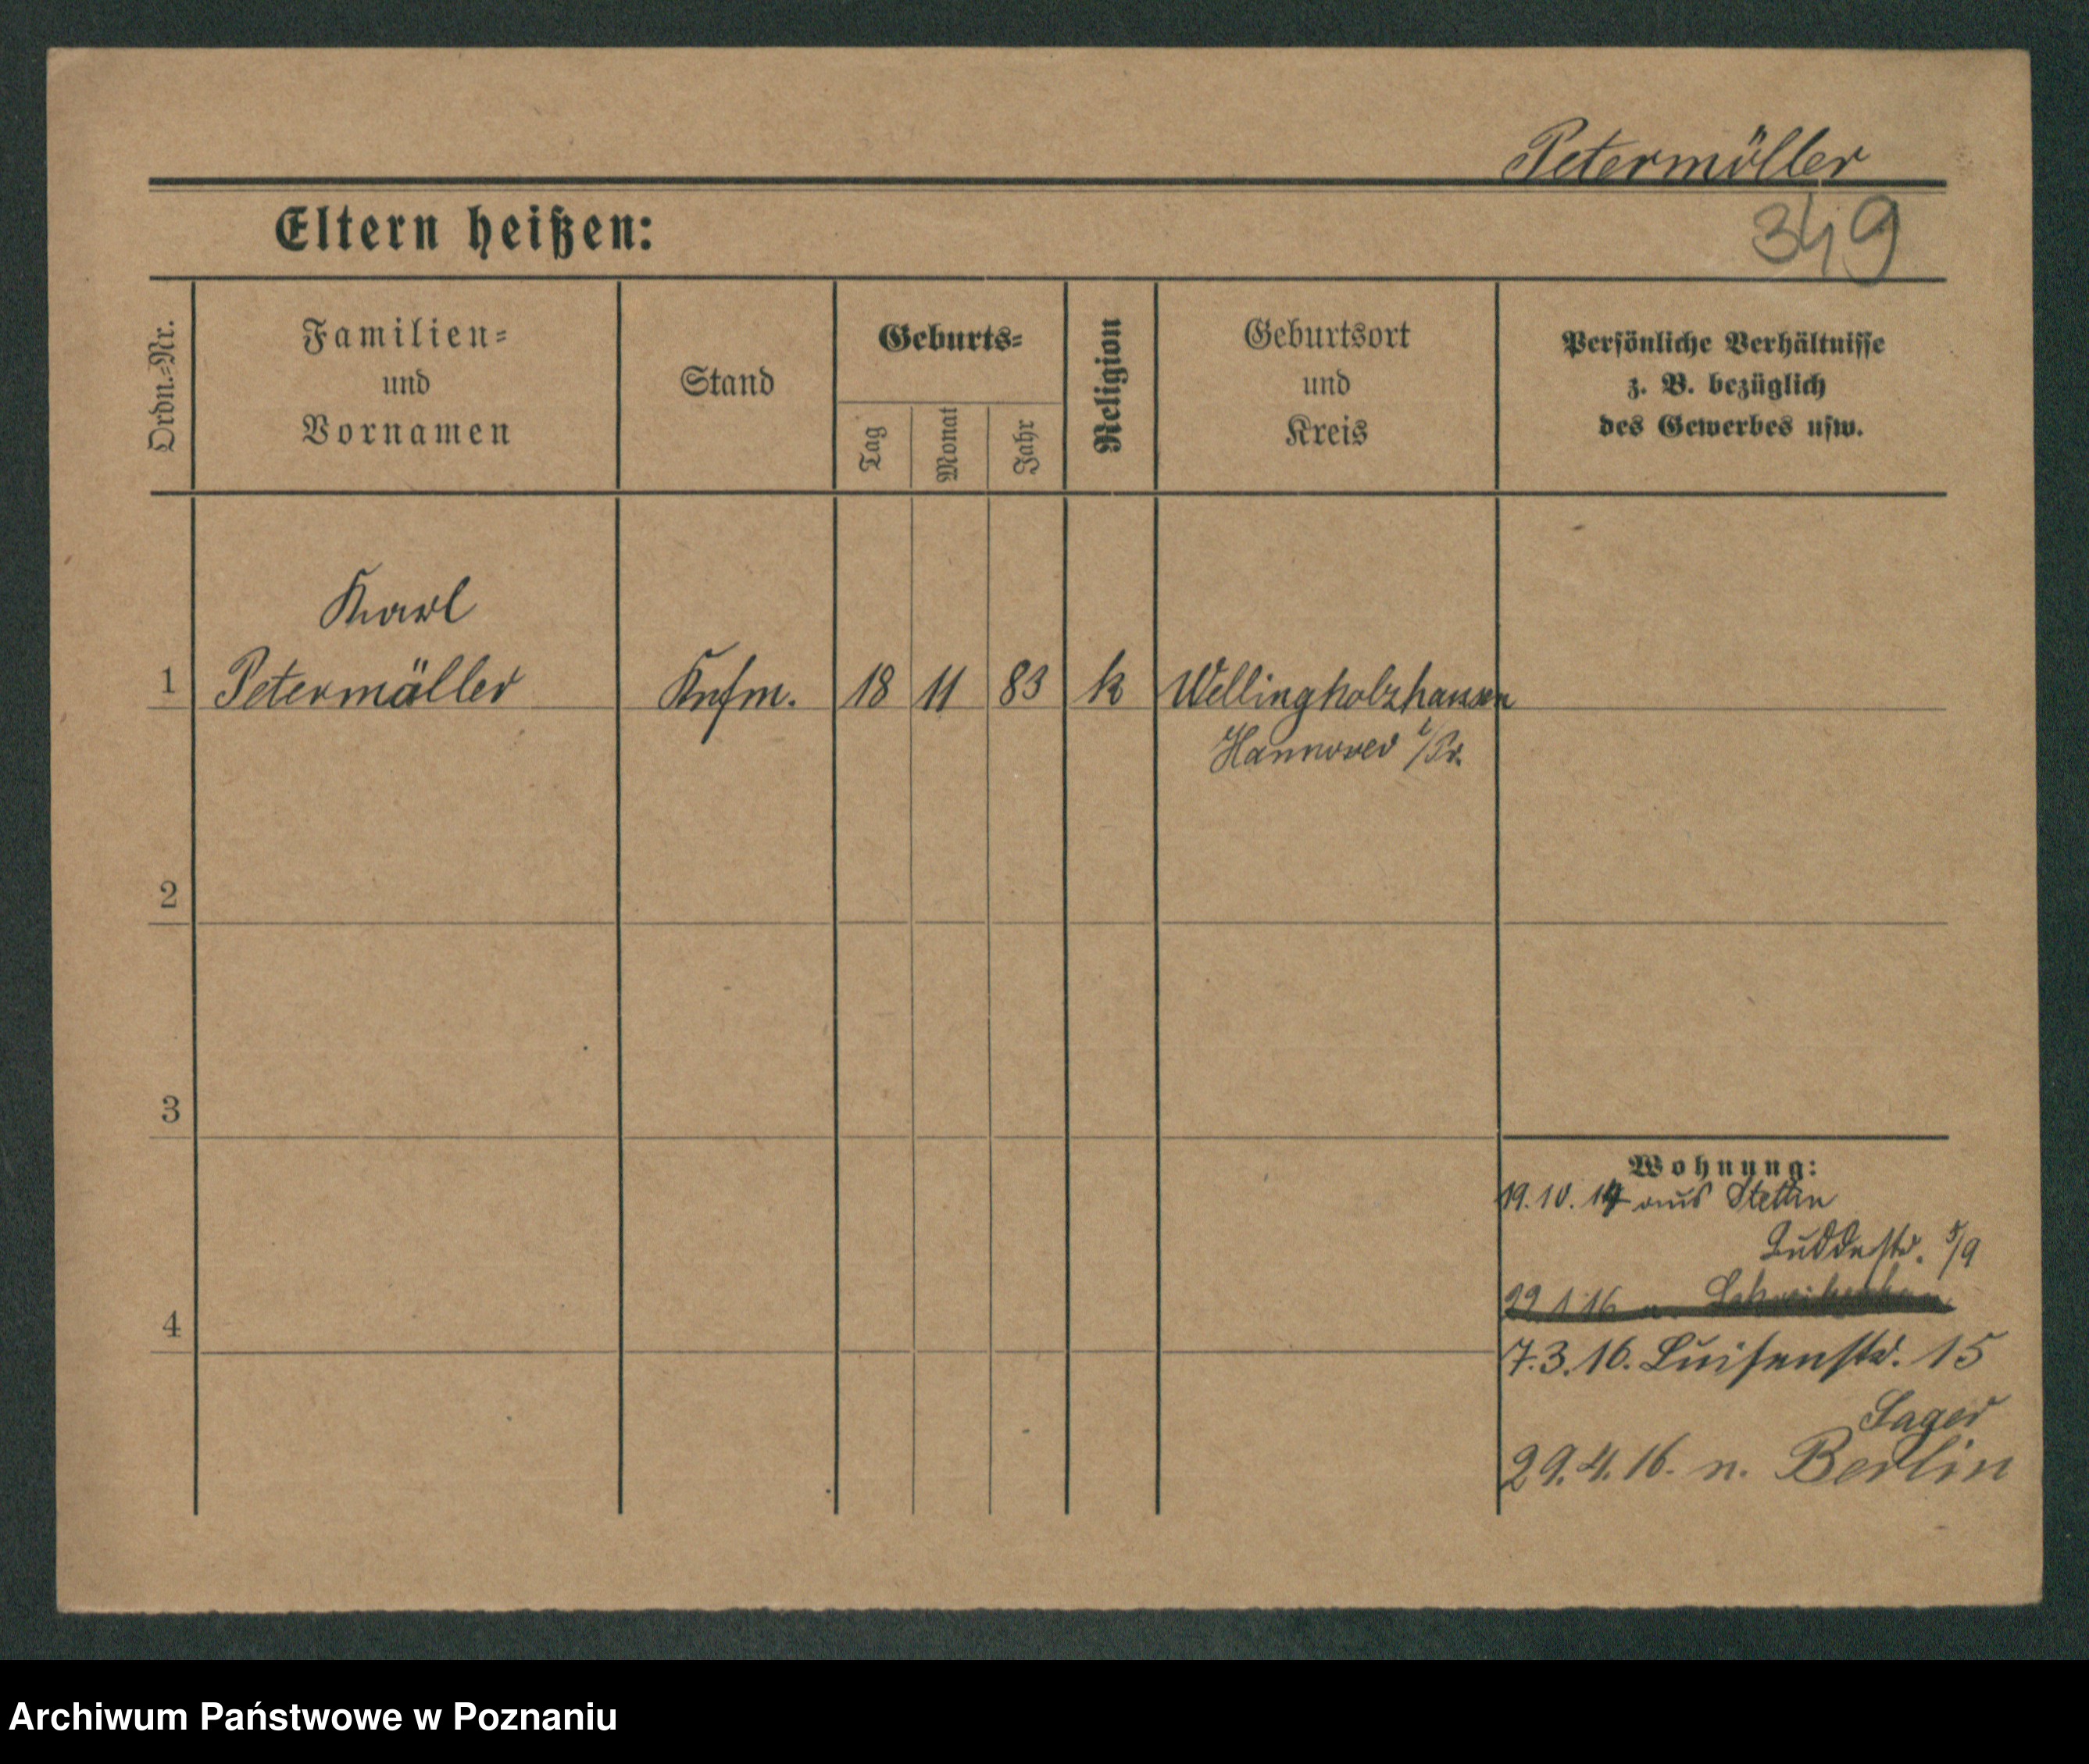 Petermöller
Eltern heißen:
349
Ordn.-Nr.
Familien-
und
Vornamen
Stand
Geburts-
Tag
Monat
Jahr
Religion
Geburtsort
und
Kreis
Persönliche Verhältnisse
z. B. bezüglich
des Gewerbes usw.
Karl
1 Petermöller Knfm. 18 11 83 k Wellingholzhausen
Hannover /Pr.
2
3
Wohnung:
19.10.14 aus Stettin
5/9
4
22.1.16 n.
7.3.16. Luisenstr. 15
Lager
29.4.16. n. Berlin
Archiwum Państwowe w Poznaniu